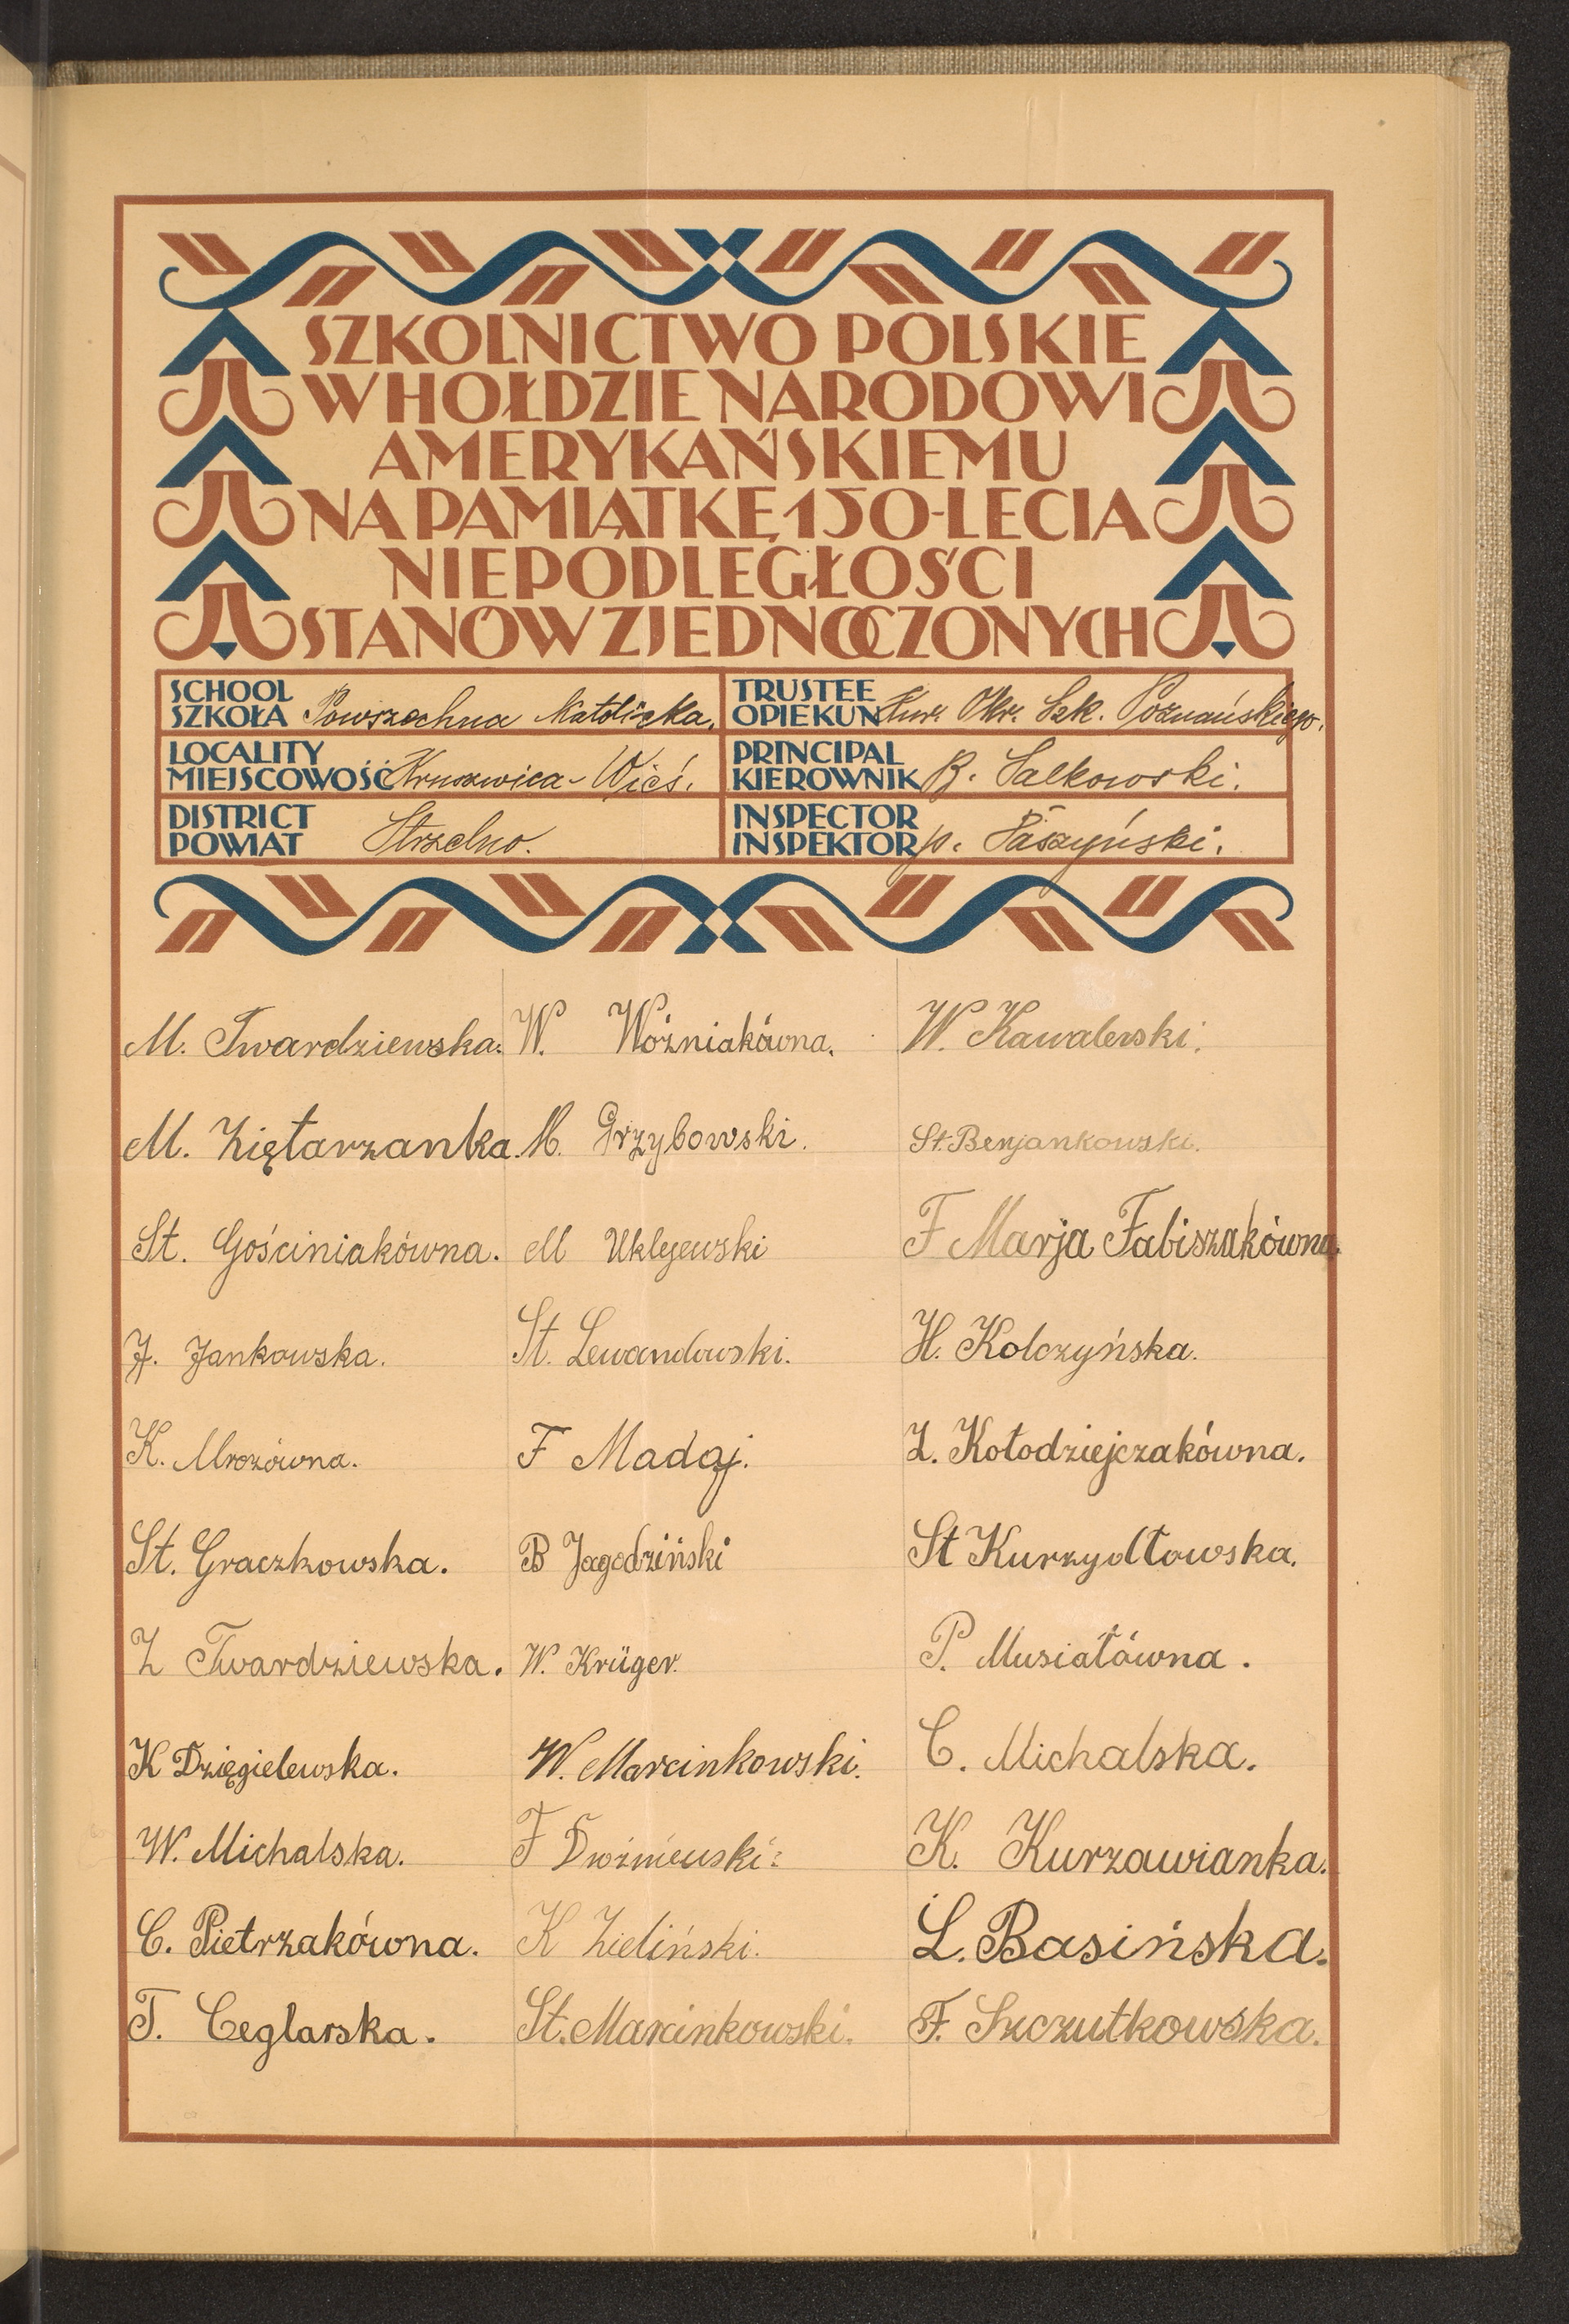 SZKOLNICTWO POLSKIE
W HOŁDZIE NARODOWI
AMERYKAŃSKIEMU
NA PAMIĄTKĘ 150-LECIA
NIEPODLEGŁOŚCI
STANÓW ZJEDNOCZONYCH
SCHOOL
SZKOŁA Powszechna Katolicka.
TRUSTEE
OPIEKUN Kur. Okr. Szk. Poznańskiego.
LOCALITY
MIEJSCOWOŚĆ Kruszwica - Wieś.
PRINCIPAL
KIEROWNIK B. Salkowski.
DISTRICT
POWIAT Strzelno.
INSPECTOR
INSPEKTOR p. Paszyński.
M. Twardziewska.
M. Ziętarzanka.
St. Gościniakówna.
J. Jankowska.
K. Mrozówna.
St. Graczkowska.
Z Twardziewska.
K Dzięgielewska.
W. Michalska.
C. Pietrzakówna.
T. Ceglarska.
W. Woźniakówna.
M. Grzybowski.
M Uklejewski
St. Lewandowski.
F Madaj.
B Jagodziński
W. Krüger.
W. Marcinkowski.
F
K Zieliński.
St. Marcinkowski.
W. Kawalerski.
St. Benjankowski.
F Marja Fabiszakówna.
H. Kolczyńska.
Z. Kołodziejczakówna.
St Kurzydłowska.
P. Musiałówna.
C. Michalska.
K. Kurzawianka.
Ł. Basińska.
F. Szczutkowska.